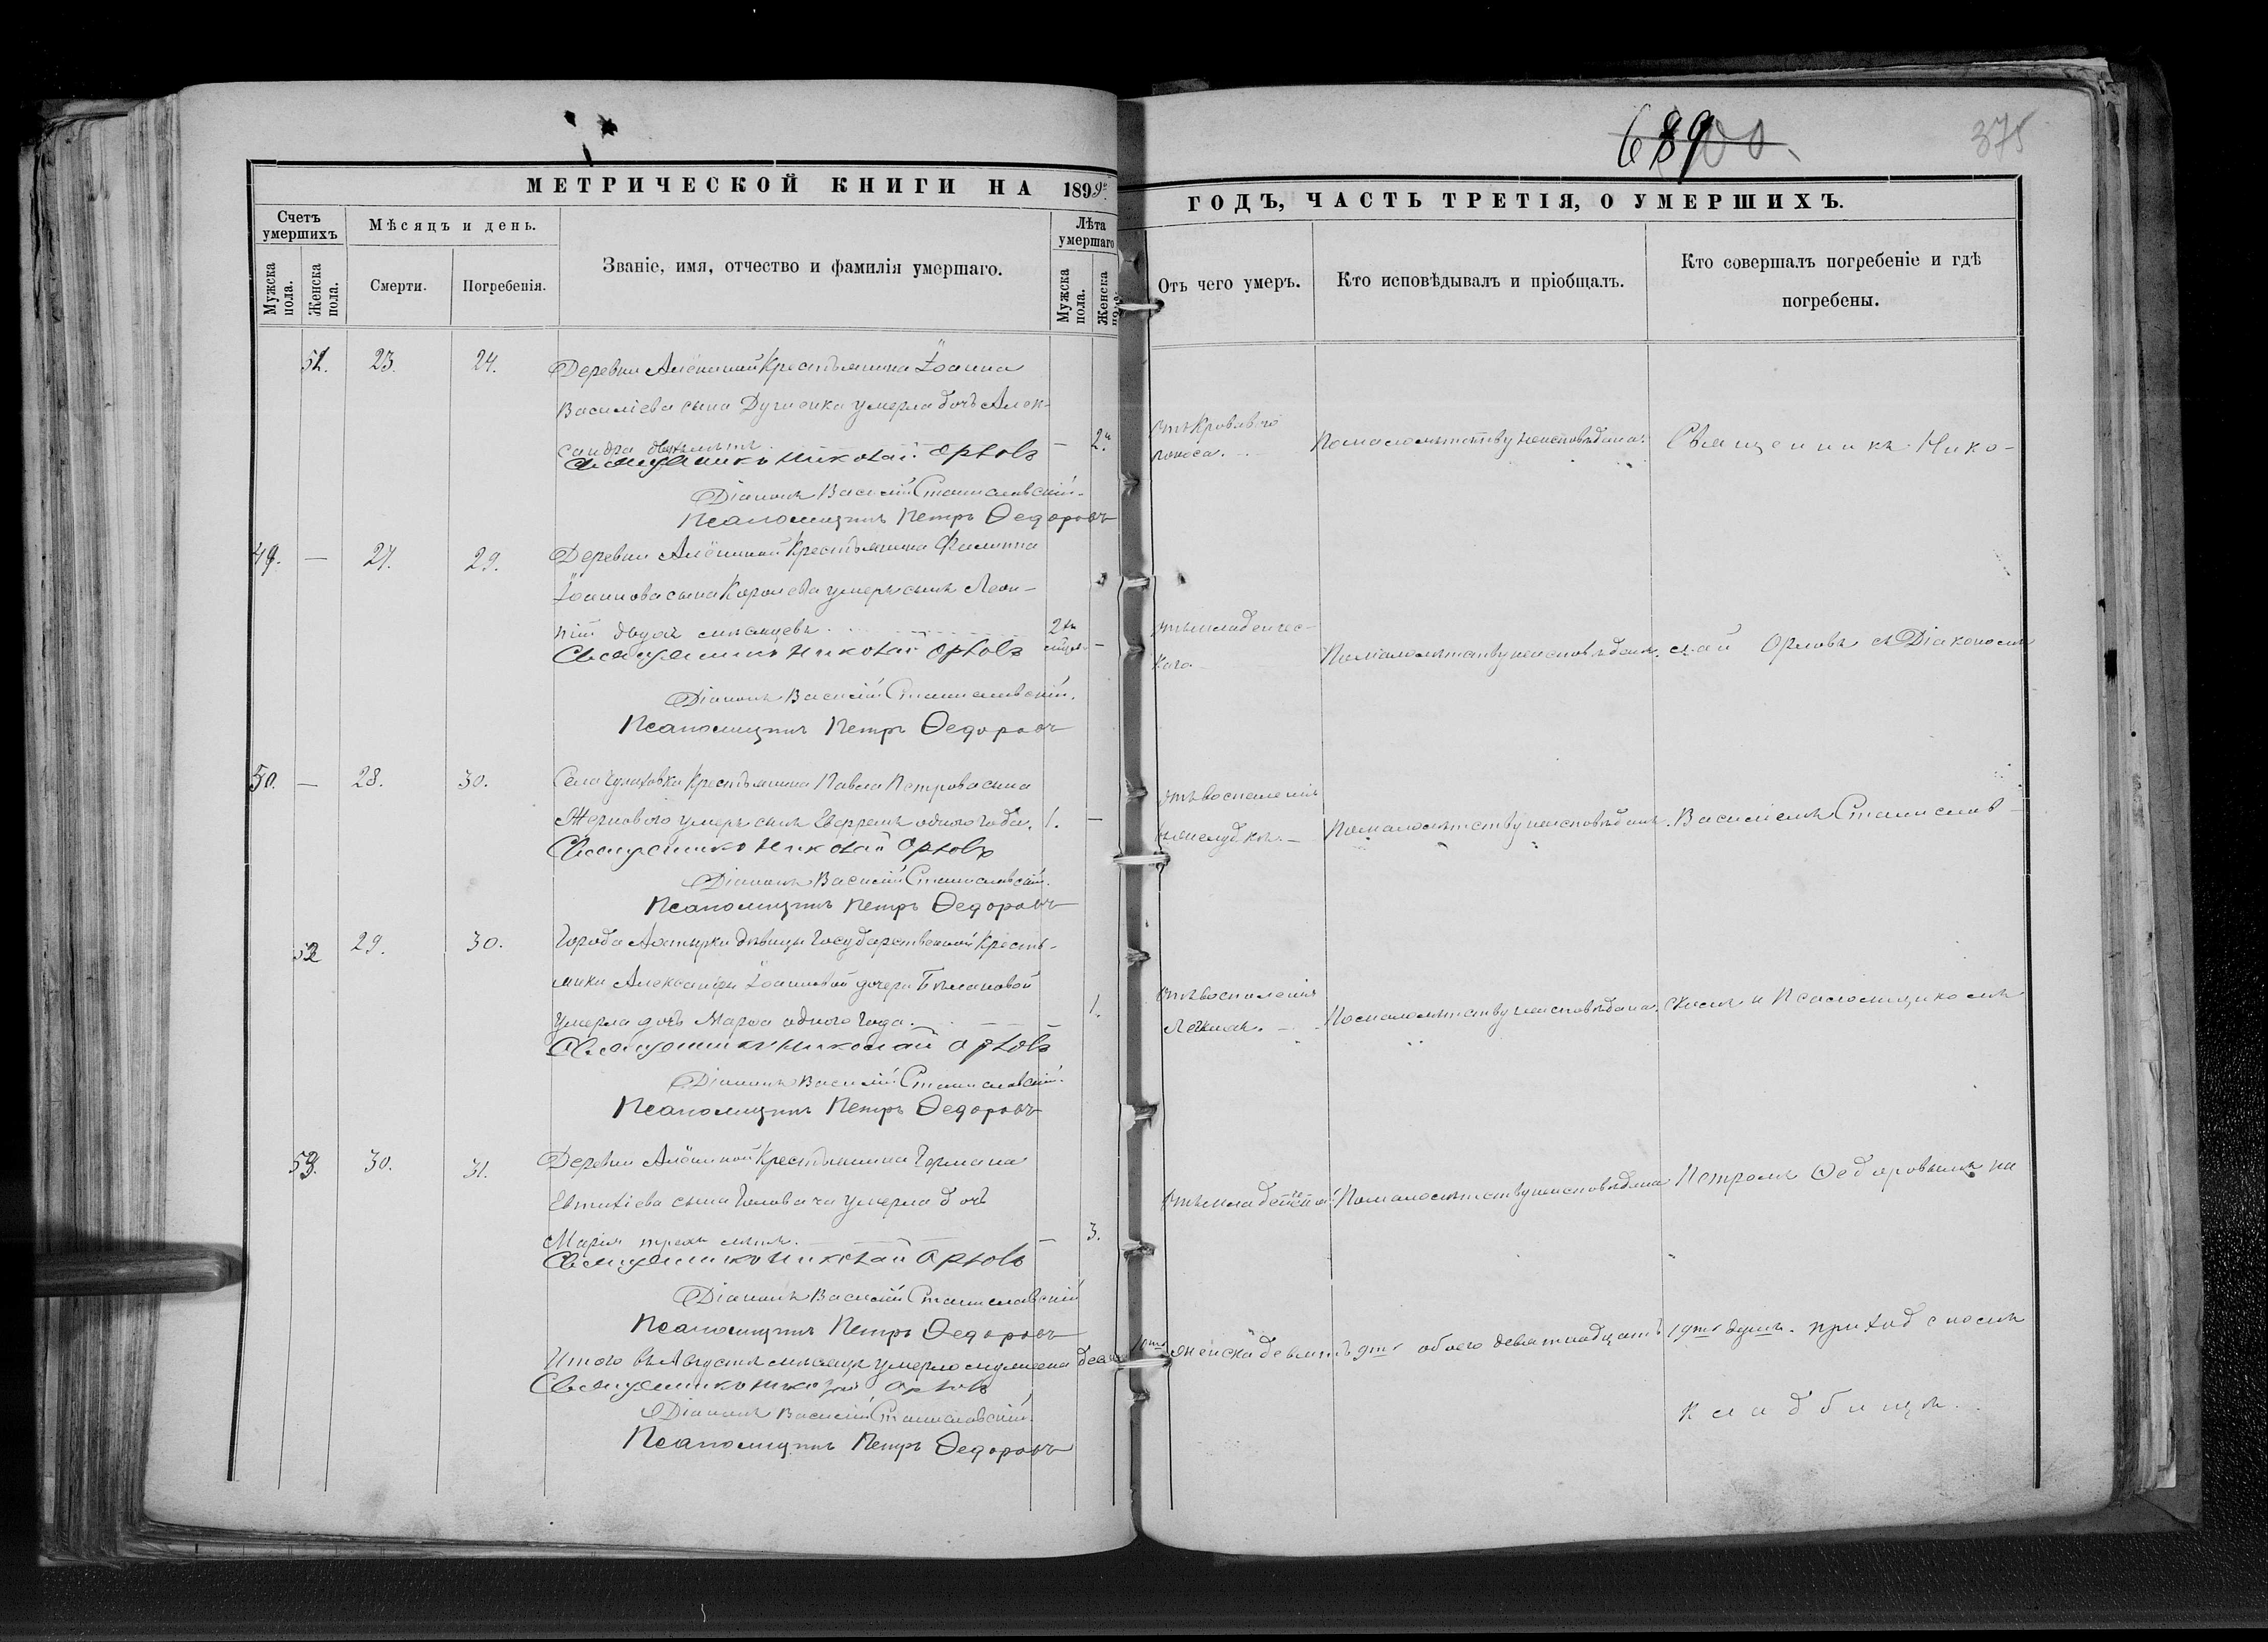 689
375
МЕТРИЧЕСКОЙ КНИГИ НА 1899
ГОДЪ, ЧАСТЬ ТРЕТІЯ, О УМЕРШИХЪ.
Счетъ умершихъ
Мужска пола.
Женска пола.
Мѣсяцъ и день.
Смерти.
Погребенія.
Званіе, имя, отчество и фамилія умершаго.
Лѣта умершаго
Мужска пола.
Женска пола.
Отъ чего умеръ.
Кто исповѣдывалъ и пріобщалъ.
Кто совершалъ погребеніе и гдѣ
погребены.
51. 23. 24. Деревни Алёшиной Крестьянина Іоанна
Василіева сына умерла дочь Алек-
сандра двухъ лѣтъ. — 2
Священникъ Николай Орловъ
Діаконъ Василій Станиславскій.
Псаломщикъ Петръ Ѳедоровъ
Отъ кроваваго
поноса.
По малолѣтству неисповѣдана.
Священникъ Нико-
49. — 27. 29. Деревни Алёшиной Крестьянина Филиппа
Іоаннова сына Королева умеръ сынъ Леон-
тій двухъ мѣсяцевъ. 2хъ —
Священникъ Николай Орловъ
Діаконъ Василій Станиславскій.
Псаломщикъ Петръ Ѳедоровъ
Отъ младенчес-
каго
По малолѣтству неисповѣданъ.
лай Орловъ съ Діакономъ
50. — 28. 30. Села Крестьянина Павла Петрова сына
Жерноваго умеръ сынъ Ефремъ одного года. 1. —
Священникъ Николай Орловъ
Діаконъ Василій Станиславскій.
Псаломщикъ Петръ Ѳедоровъ
Отъ воспаленія
въ желудкѣ. —
По малолѣтству неисповѣданъ.
Василіемъ Станислав-
52 29. 30. Города Ахтырки дѣвицы Государственной Кресть-
янки Александры Іоанновой дочери
умерла дочь Марѳа одного года. — 1.
Священникъ Николай Орловъ
Діаконъ Василій Станиславскій.
Псаломщикъ Петръ Ѳедоровъ
Отъ воспаленія
Легкихъ. —
По малолѣтству неисповѣдана.
скимъ и Псаломщикомъ
53. 30. 31. Деревни Алёшиной Крестьянина Германа
Евтихіева сына Головача умерла дочь
Марія трехъ лѣтъ. — 3.
Священникъ Николай Орловъ
Діаконъ Василій Станиславскій
Псаломщикъ Петръ Ѳедоровъ
По малолѣтству неисповѣдана
Петромъ Ѳедоровымъ на
Итого въ Августѣ мѣсяцѣ умерло мужеска женска девять 9ть обоего девятнадцать 19ть душъ.
приходскомъ
Священникъ Николай Орловъ
Діаконъ Василій Станиславскій.
Псаломщикъ Петръ Ѳедоровъ
кладбищѣ.